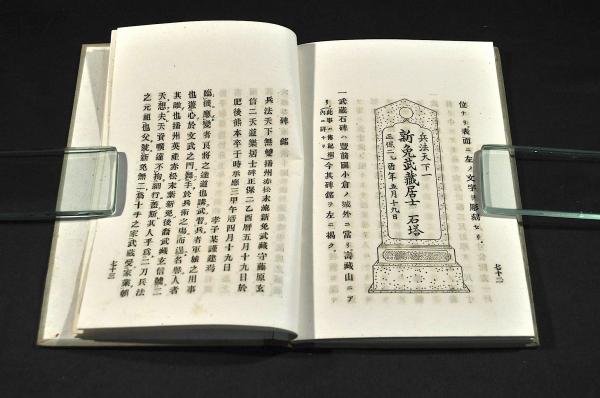 位ナリ表面ニ左ノ文字ヲ彫刻
兵法天下一
新免武藏居士 石塔
正保二乙酉年五月十九日
一武藏石碑ハ豊前國小倉ノ城外ニ當リ壽藏山ニア
今其碑銘ヲ左ニ揭ク。
七十二
碑銘
兵法天下無雙播州赤松末流新免武藏守藤原玄
信二天道樂居士碑正保二乙酉曆五月十九日於
肥後熊本卒于時承應三甲午年四月十九日
孝子某謹建焉
臨機應變者良將之達道也講武習兵者軍旅之用事
也遊心於文武之門舞手於兵術之場而逞名譽人者
其誰也播州英產赤松末葉新免後裔武藏玄信號二
天想夫天資曠達不拘細行蓋斯其人乎爲二刀兵法
之元祖也父號新免無二爲十手之家武藏受家業朝
七十三